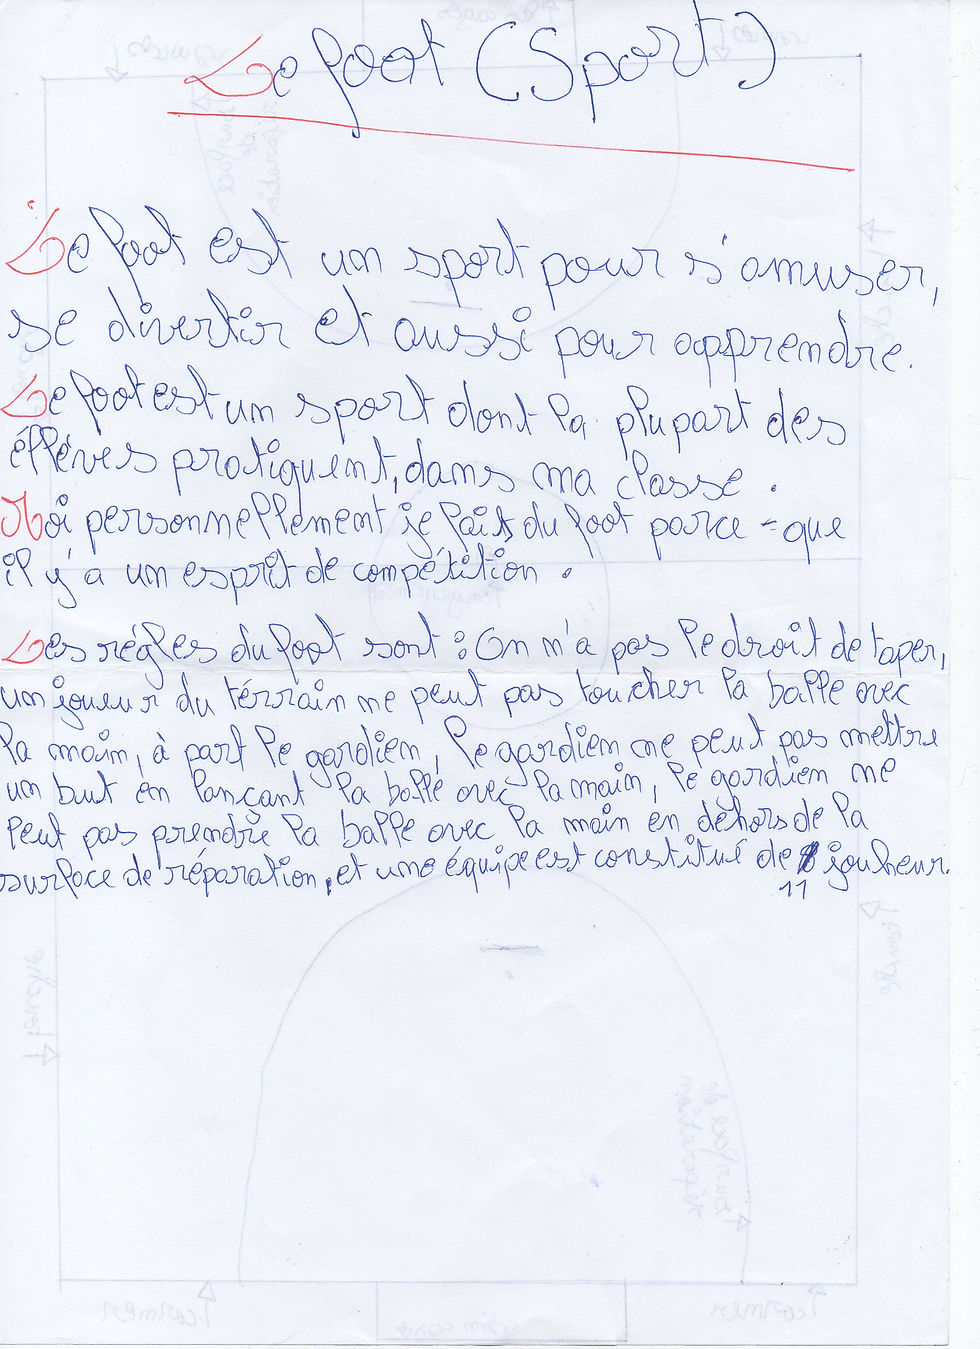 Le foot (Sport)
Le foot est un sport pour s'amuser,
se divertir et aussi pour apprendre.
Le foot est un sport dont la plupart des
éllèves pratiquent, dans ma classe.
Moi personnellement je fais du foot parce-que
il y'a un esprit de compétition.
Les régles du foot sont : On n'a pas le droit de taper,
un joueur du térrain ne peut pas toucher la balle avec
la main, à part le gardien, le gardien ne peut pas mettre
un but en lançant la balle avec la main, le gardien ne
peut pas prendre la balle avec la main en dehors de la
surface de réparation, et une équipe est constitué de joueur.
11